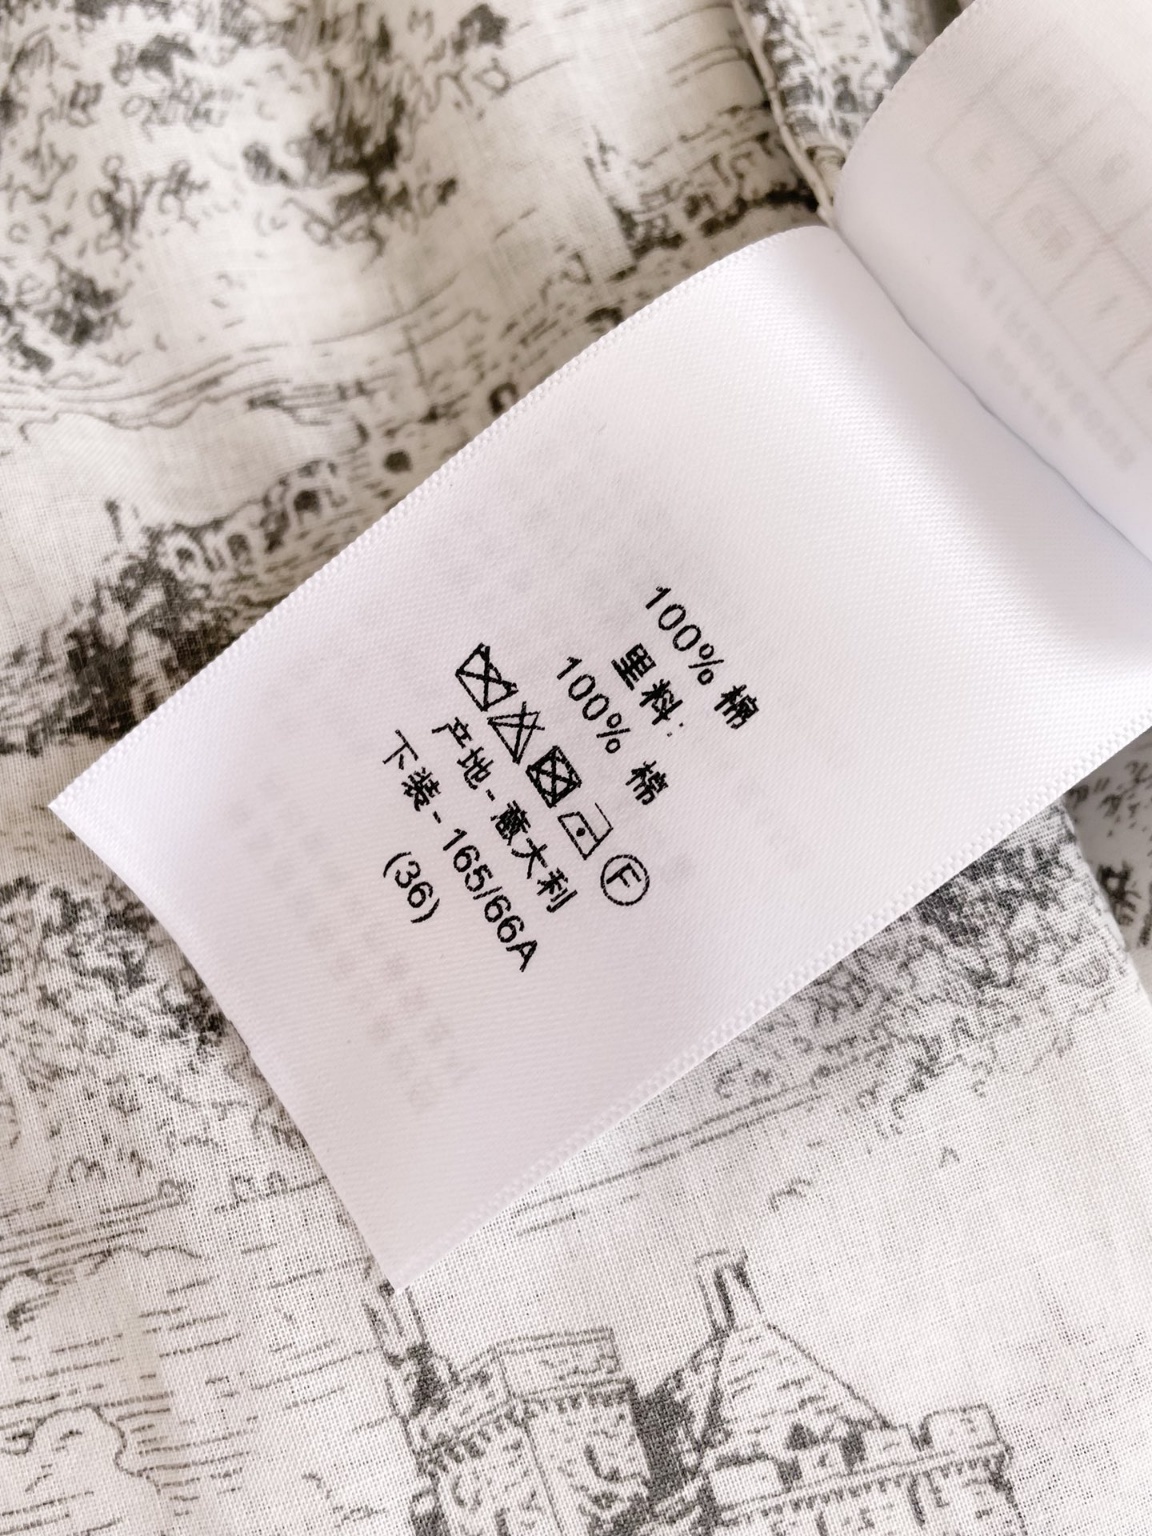 100% 棉
里料:
100% 棉
F
产地-意大利
下装-165/66A
(36)